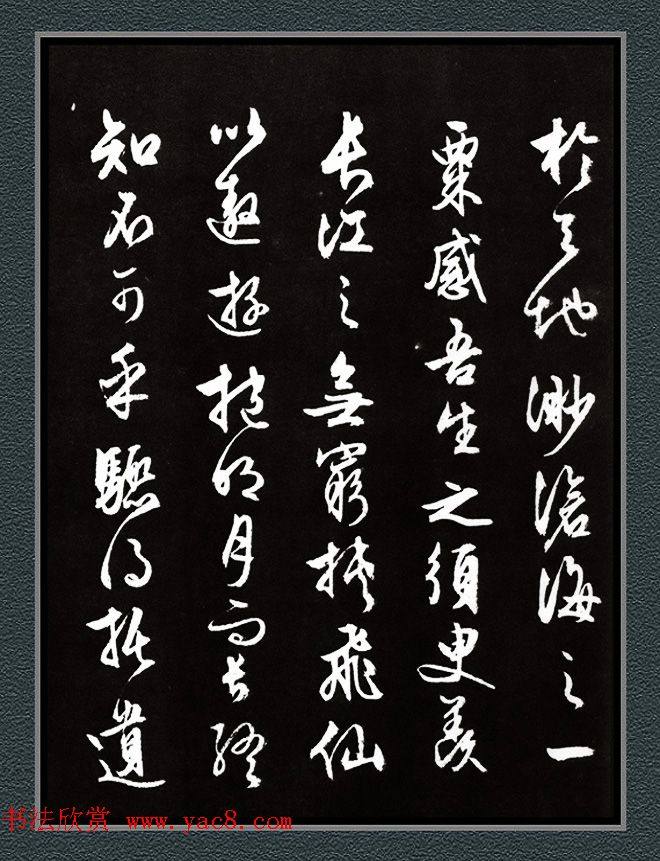 於天地渺滄海之一
粟感吾生之須臾羨
長江之無窮挾飛仙
以遨遊抱明月而長終
知不可乎驟得托遺
书法欣赏 www.yac8.com